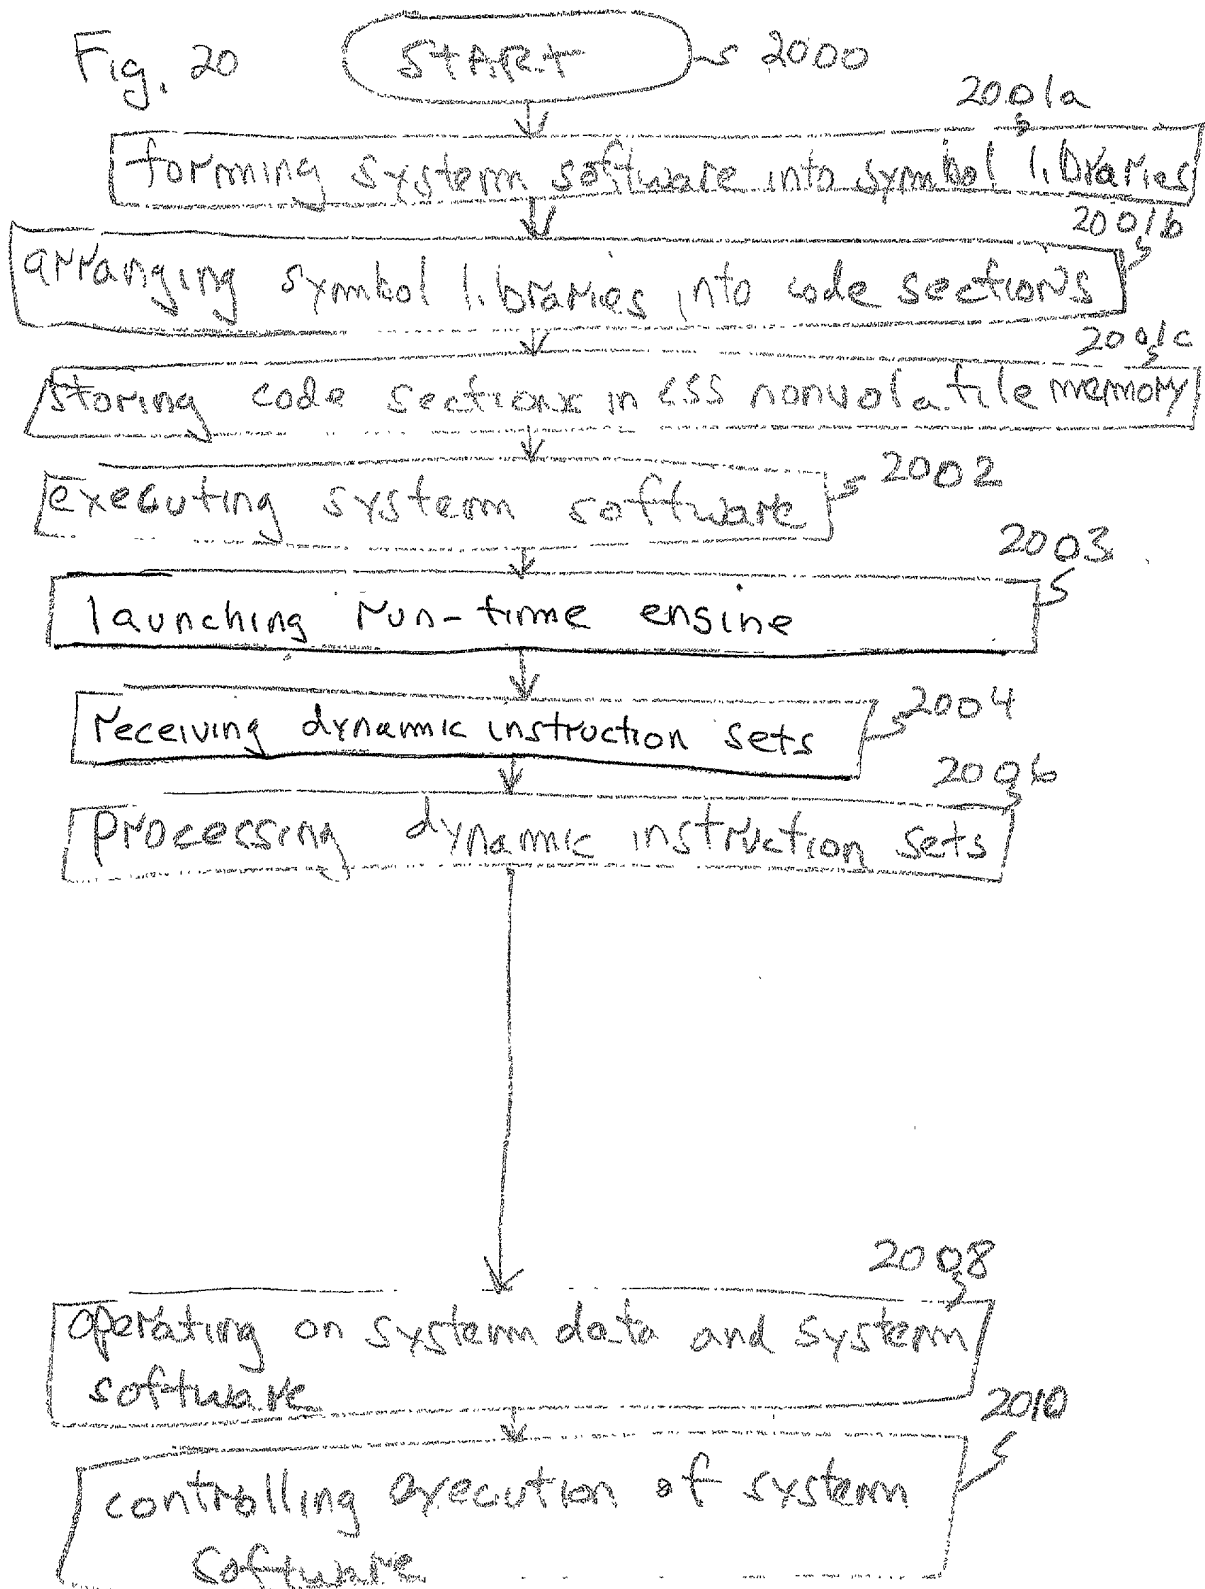 Fig. 20
START 2000
2001a
forming system software into symbol libraries
2001b
arranging symbol libraries into code sections
2001c
storing code sections in CSS nonvolatile memory
2002
executing system software
2003
launching run-time engine
2004
receiving dynamic instruction sets
2006
processing dynamic instruction sets
2008
operating on system data and system
software
2010
controlling execution of system
software